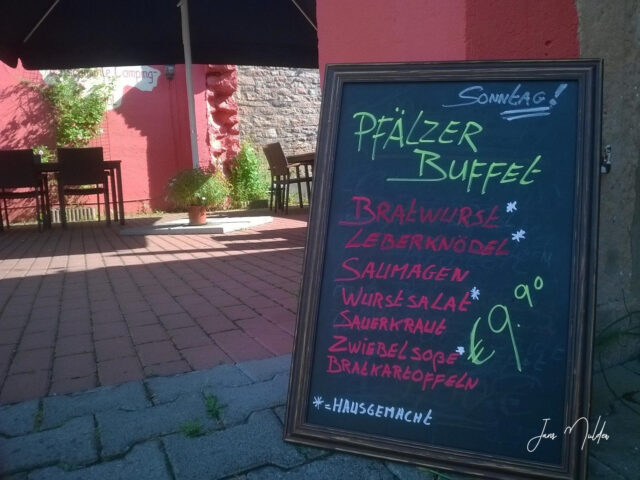 Camping
SONNTAG!
PFÄLZER
BUFFET
BRATWURST*
LEBERKNÖDEL*
SAUMAGEN
WURSTSALAT*
SAUERKRAUT
ZWIEBELSOßE*
BRATKARTOFFELN
€9.90
*=HAUSGEMACHT
Jans Mulder